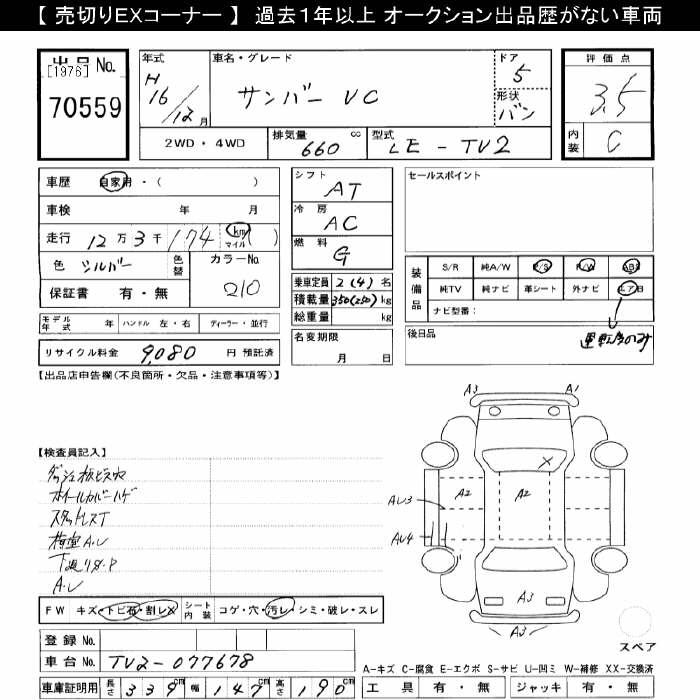 【 売切りEXコーナー 】 過去１年以上 オークション出品歴がない車両
出品 No.
[1976]
70559
年式
H
16/12月
車名・グレード
サンバー VC
ドア
5
形状
バン
評価点
3.5
内装
C
2WD ・ 4WD
排気量
660
cc
型式
LE - TV2
車歴 自家用 ・ ( )
車検 年 月
走行 12万 3千 174 km マイル ( )
色 シルバー
色替
カラーNo.
210
保証書 有 ・ 無
モデル年式 年
ハンドル 左 ・ 右
ディーラー ・ 並行
リサイクル料金 9,080 円 預託済
シフト
AT
冷房
AC
燃料
G
乗車定員 2 (4) 名
積載量 350(250) kg
総重量 kg
名変期限
月 日
セールスポイント
装備品
S/R 純A/W P/S P/W ABS
純TV 純ナビ 革シート 外ナビ エアB
ナビ型番：
後日品
運転席のみ
【出品店申告欄(不良箇所・欠品・注意事項等)】
【検査員記入】
ダッシュ板ビス穴
ホイールカバーハゲ
スタッドレスT
荷室A.U
下廻りサ.P
A.U
FW キズ・トビ石・割レX
シート内装 コゲ・穴・汚レ・シミ・破レ・スレ
登録 No.
車台 No. TV2-077678
車庫証明用 長さ 339cm 幅 147cm 高さ 190cm
A3
A1
X
A2
A2
AU3
AU4
A3
A3
スペア
A-キズ C-腐食 E-エクボ S-サビ U-凹ミ W-補修 XX-交換済
工具 有 ・ 無
ジャッキ 有 ・ 無